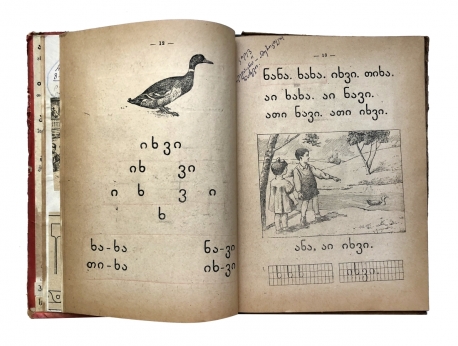 — 18 —
იხვი
იხ ვი
ი ხ ვ ი
ხ
ხა-ხა ნა-ვი
თი-ხა იხ-ვი
— 19 —
ნანა. ხახა. იხვი. თიხა.
აი ხახა. აი ნავი.
ათი ნავი. ათი იხვი.
ანა, აი იხვი.
იხვი